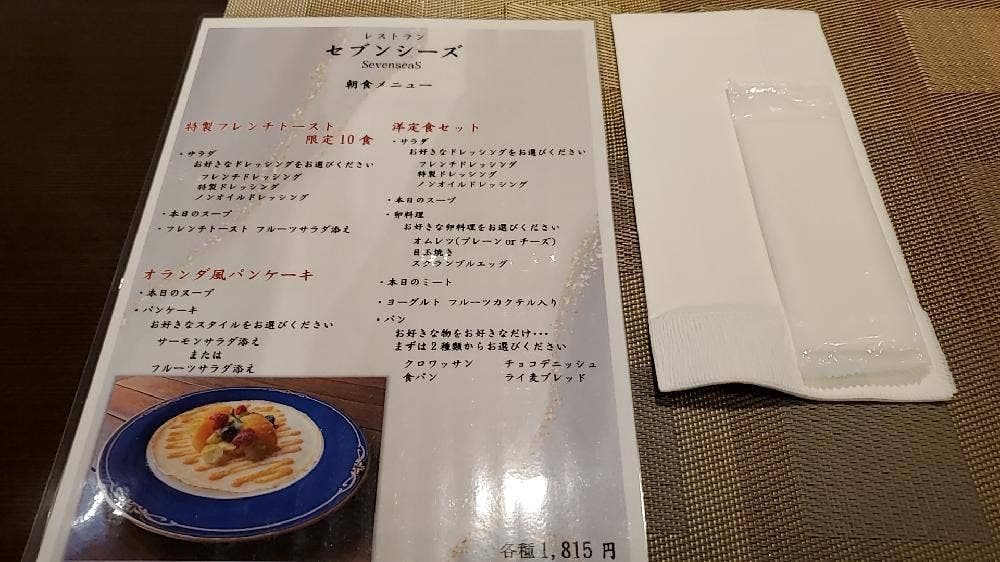 レストラン
セブンシーズ
SevenseaS
朝食メニュー
特製フレンチトースト
限定10食
・サラダ
お好きなドレッシングをお選びください
フレンチドレッシング
特製ドレッシング
ノンオイルドレッシング
・本日のスープ
・フレンチトースト フルーツサラダ添え
オランダ風パンケーキ
・本日のスープ
・パンケーキ
お好きなスタイルをお選びください
サーモンサラダ添え
または
フルーツサラダ添え
洋定食セット
・サラダ
お好きなドレッシングをお選びください
フレンチドレッシング
特製ドレッシング
ノンオイルドレッシング
・本日のスープ
・卵料理
お好きな卵料理をお選びください
オムレツ(プレーン or チーズ)
目玉焼き
スクランブルエッグ
・本日のミート
・ヨーグルト フルーツカクテル入り
・パン
お好きな物をお好きなだけ・・・
まずは2種類からお選びください
クロワッサン チョコデニッシュ
食パン ライ麦ブレッド
各種1,815 円